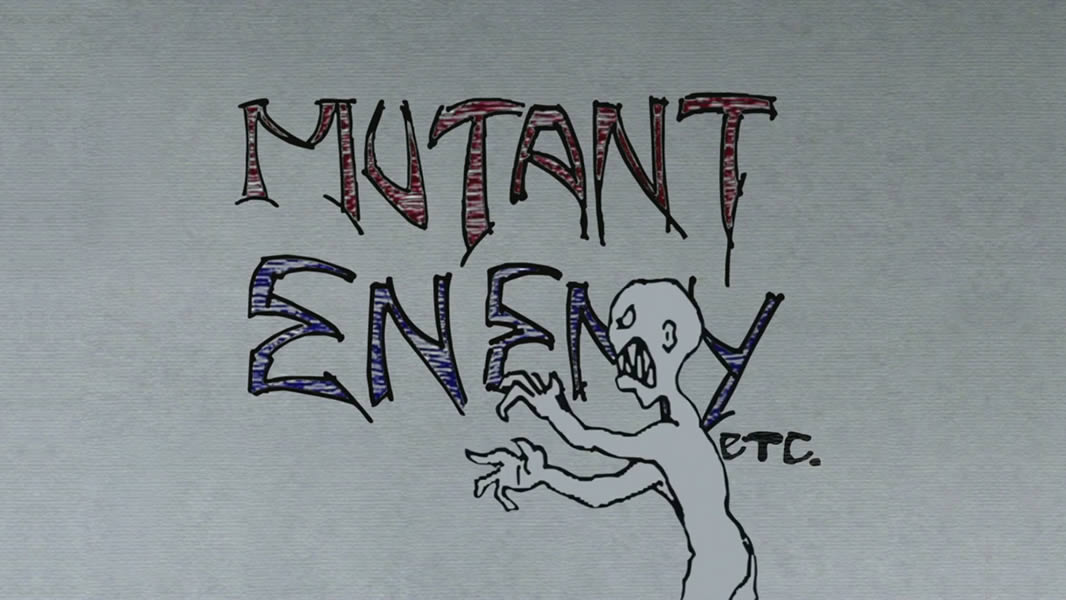 MUTANT
ENEMY
etc.